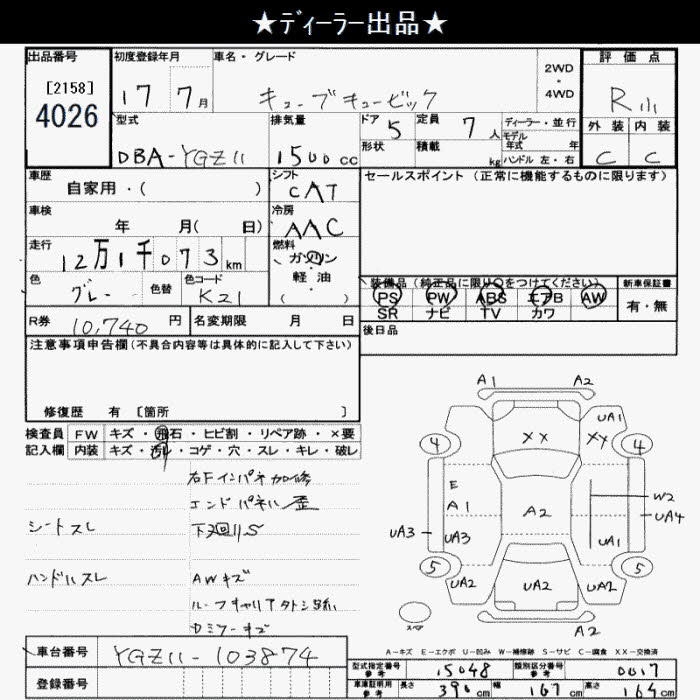 ★ディーラー出品★
出品番号
[2158]
4026
初度登録年月
17 7月
車名・グレード
キューブキュービック
2WD
・
4WD
評価点
R小
外装 内装
C C
型式
DBA-YGZ11
排気量
1500cc
ドア 5
定員 7人
形状
積載 kg
ディーラー・並行
モデル
年式 年
ハンドル 左・右
車歴
自家用・( )
シフト
CAT
セールスポイント(正常に機能するものに限ります)
車検
年 月( 日)
冷房
AAC
走行
12万1千073km
燃料
ガソリン
・
軽油
( )
色
グレー
色替
色コード
K21
装備品(純正品に限り○をつけてください)
PS PW ABS エアB AW
SR ナビ TV カワ
新車保証書
有・無
R券
10,740円
名変期限 月 日
後日品
注意事項申告欄(不具合内容等は具体的に記入して下さい)
修復歴 有 [箇所 ]
検査員
記入欄
FW キズ・飛石・ヒビ割・リペア跡・×要
内装 キズ・汚レ・コゲ・穴・スレ・キレ・破レ
右Fインパネ加修
エンドパネル歪
シートスレ
下廻りS
ハンドルスレ
AWキズ
ルーフキャリアアトシ跡
ウミラーキズ
A1 A2
4 XX UA1 XX 4
E
A1 A2 W2
UA4
UA3 UA3 UA1
5 UA2 UA2 UA2 5
スペア
A2
A-キズ E-エクボ U-凹み W-補修跡 S-サビ C-腐食 XX-交換済
車台番号
YGZ11-103874
登録番号
型式指定番号
参考
15048
類別区分番号
参考
0017
車庫証明用
参考
長さ 390cm 幅 167cm 高さ 164cm